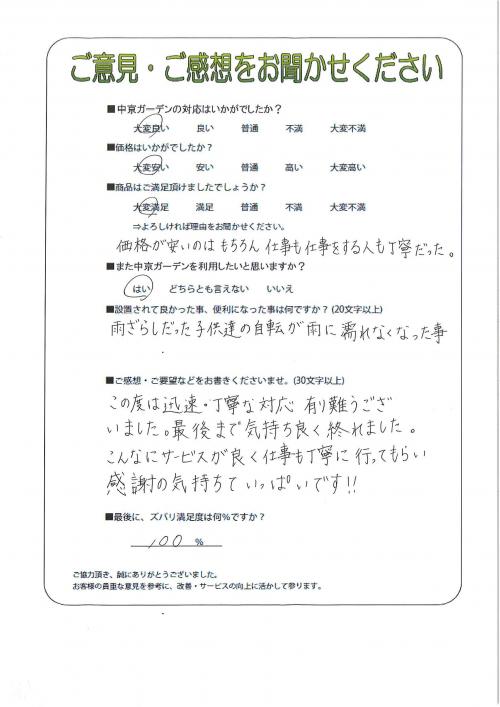 ご意見・ご感想をお聞かせください
■中京ガーデンの対応はいかがでしたか？
大変良い 良い 普通 不満 大変不満
■価格はいかがでしたか？
大変安い 安い 普通 高い 大変高い
■商品はご満足頂けましたでしょうか？
大変満足 満足 普通 不満 大変不満
⇒よろしければ理由をお聞かせください。
価格が安いのはもちろん 仕事も仕事をする人も丁寧だった。
■また中京ガーデンを利用したいと思いますか？
はい どちらとも言えない いいえ
■設置されて良かった事、便利になった事は何ですか？(20文字以上)
雨ざらしだった子供達の自転が雨に濡れなくなった事
■ご感想・ご要望などをお書きくださいませ。(30文字以上)
この度は迅速・丁寧な対応 有り難うござ
いました。最後まで気持ち良く終れました。
こんなにサービスが良く仕事も丁寧に行ってもらい
感謝の気持ちでいっぱいです!!
■最後に、ズバリ満足度は何％ですか？
100 %
ご協力頂き、誠にありがとうございました。
お客様の貴重な意見を参考に、改善・サービスの向上に活かして参ります。